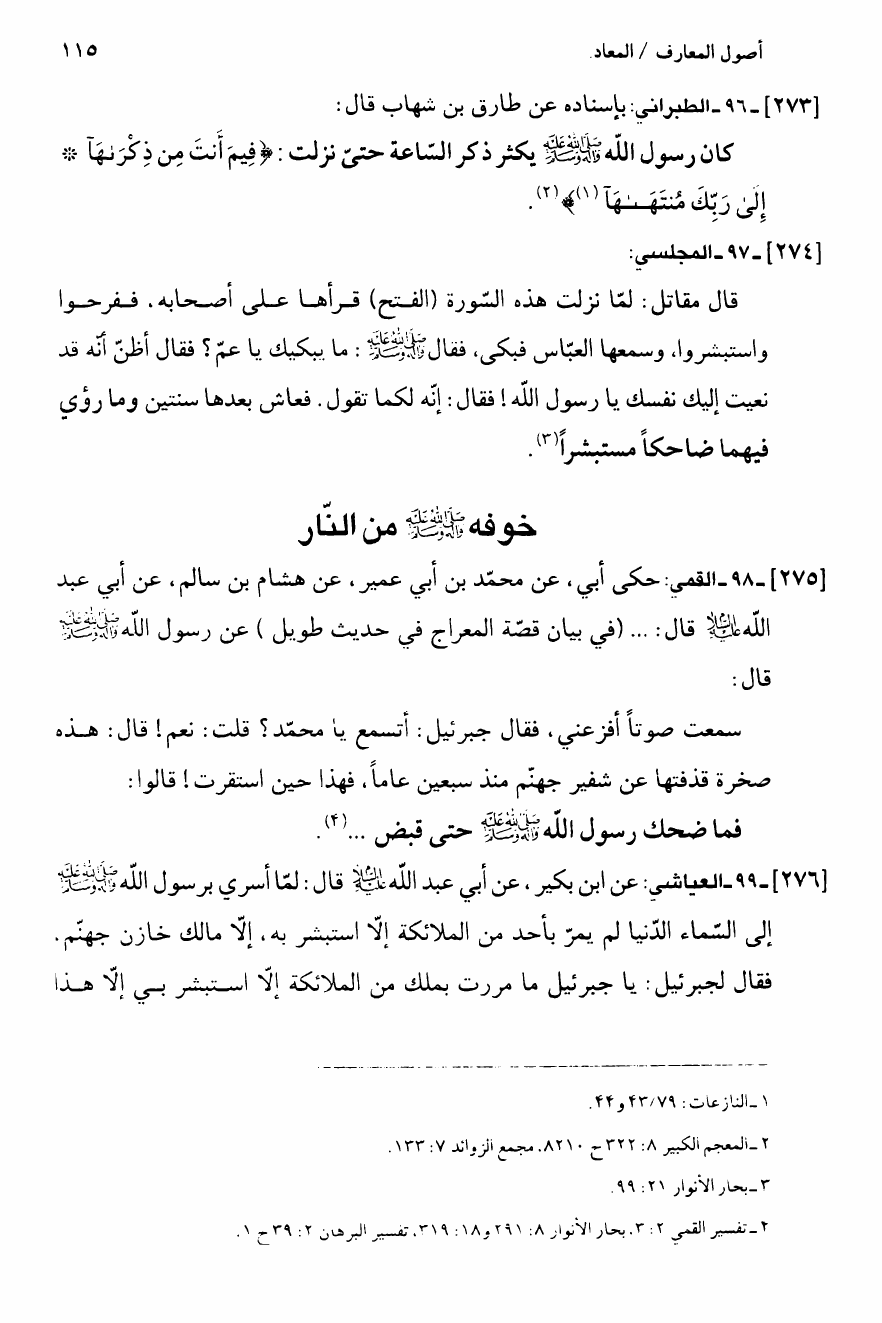 أصول المعارف / المعاد. ١١٥
[٢٧٣] ـ ٩٦ ـ الطبراني: بإسناده عن طارق بن شهاب قال:
كان رسول اللّه ﷺ يكثر ذكر السّاعة حتىّ نزلت: ﴿فِيمَ أَنتَ مِن ذِكْرَىٰهَآ *
إِلَىٰ رَبِّكَ مُنتَهَـىٰهَآ (١)﴾(٢).
[٢٧٤] ـ ٩٧ ـ المجلسي:
قال مقاتل: لمّا نزلت هذه السّورة (الفـتح) قـرأهـا عـلى أصـحابه، فـفرحـوا
واستبشروا، وسمعها العبّاس فبكى، فقال ﷺ: ما يبكيك يا عمّ؟ فقال أظنّ أنّه قد
نعيت إليك نفسك يا رسول اللّه! فقال: إنّه لكما تقول. فعاش بعدها سنتين وما رؤي
فيهما ضاحكاً مستبشراً(٣).
خوفه ﷺ من النّار
[٢٧٥] ـ ٩٨ ـ القمي: حكى أبي، عن محمّد بن أبي عمير، عن هشام بن سالم، عن أبي عبد
اللّه عليه السلام قال: ... (في بيان قصّة المعراج في حديث طويل ) عن رسول اللّه ﷺ
قال:
سمعت صوتاً أفزعني، فقال جبرئيل: أتسمع يا محمّد؟ قلت: نعم! قال: هـذه
صخرة قذفتها عن شفير جهنّم منذ سبعين عاماً، فهذا حين استقرت! قالوا:
فما ضحك رسول اللّه ﷺ حتى قبض ...(۴).
[٢٧٦] ـ ٩٩ ـ العياشي: عن ابن بكير، عن أبي عبد اللّه عليه السلام قال: لمّا أسري برسول اللّه ﷺ
إلى السّماء الدّنيا لم يمرّ بأحد من الملائكة إلّا استبشر به، إلّا مالك خازن جهنّم،
فقال لجبرئيل: يا جبرئيل ما مررت بملك من الملائكة إلّا اسـتبشر بـي إلّا هـذا
١ ـ النازعات: ٤٣/٧٩ و ۴۴.
٢ ـ المعجم الكبير ٨: ٣٢٢ ح ٨٢١٠، مجمع الزوائد ٧: ١٣٣.
٣ ـ بحار الأنوار ٢١: ٩٩.
۴ ـ تفسير القمي ٢: ٣، بحار الأنوار ٨: ٢٩١ و ١٨: ٣١٩، تفسير البرهان ٢: ٣٩ ح ١.